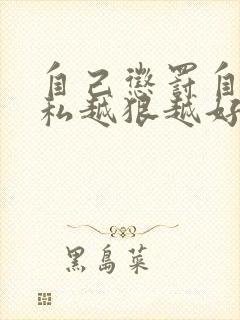 自己懲罰自
私越狠越好
黑島菜